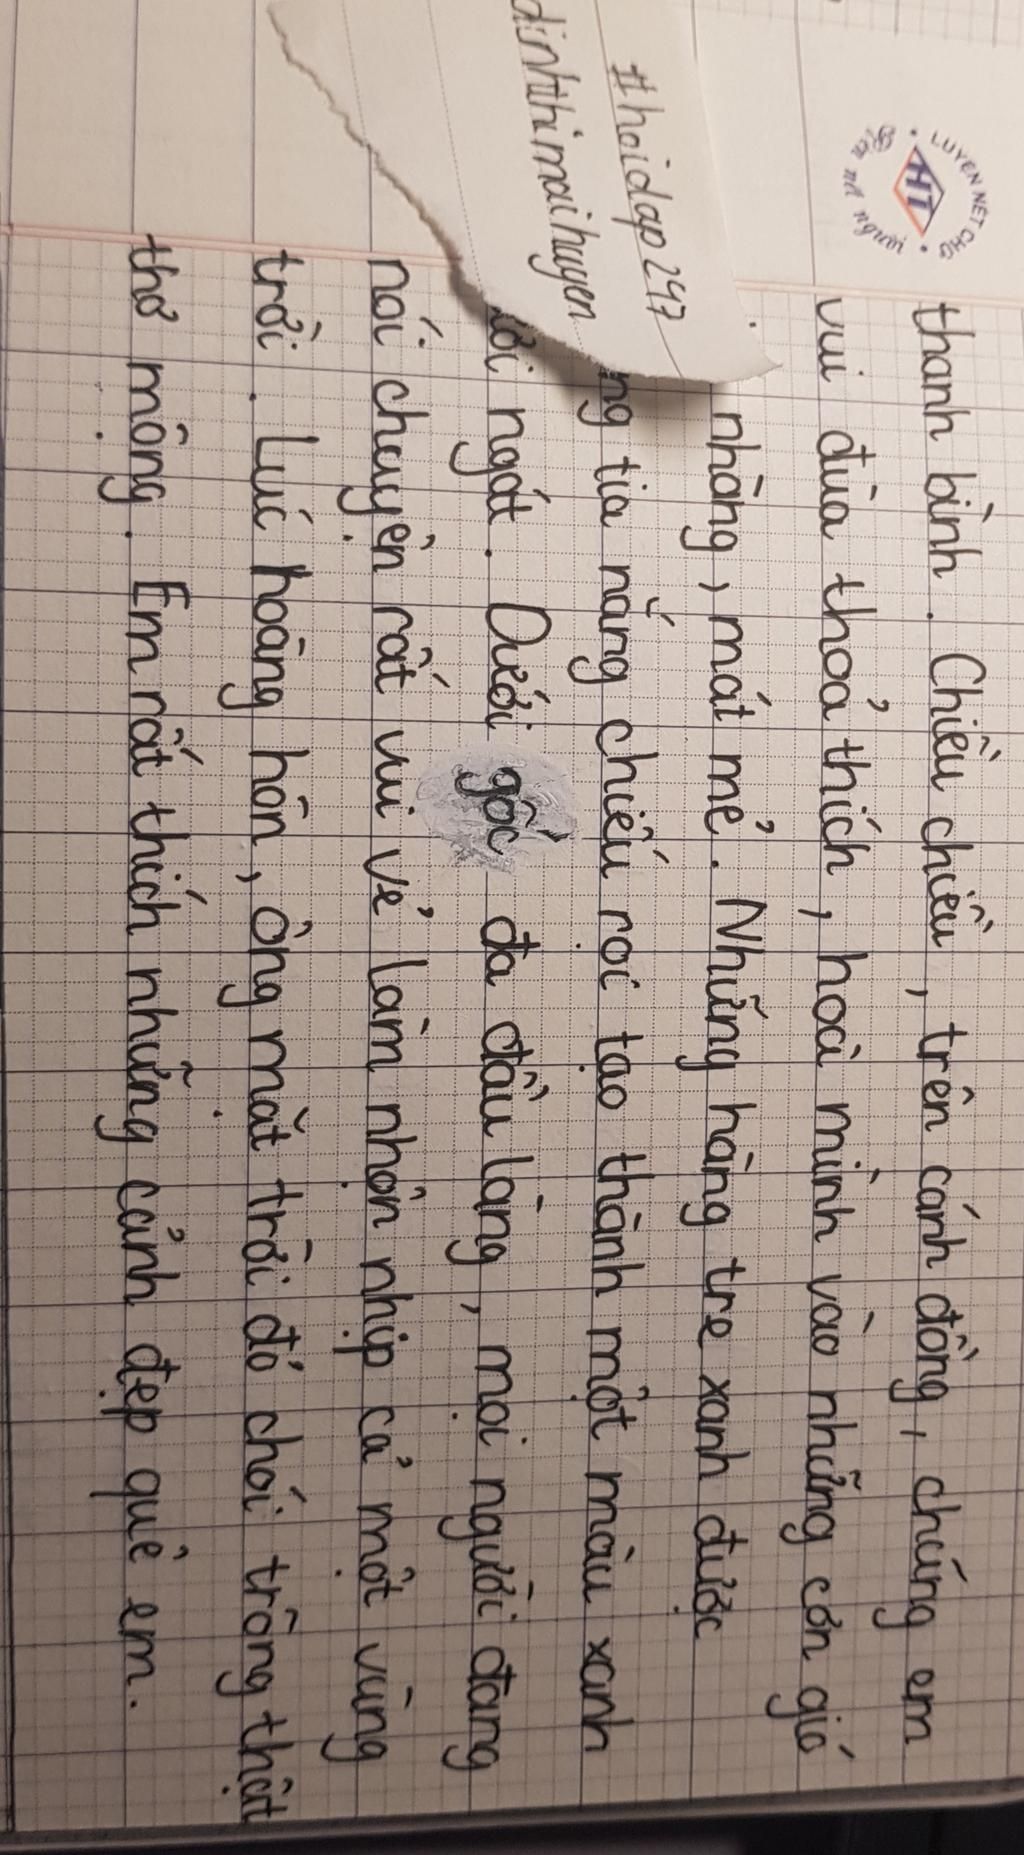 LUYỆN NÉT CHỮ
HT
nết người
#hoidap247
dinhthimaihuyen
thanh bình. Chiều chiều, trên cánh đồng, chúng em
vui đùa thoả thích, hoà mình vào những cơn gió
nhàng, mát mẻ. Những hàng tre xanh được
tia nắng chiếu rọi tạo thành một màu xanh
ngát. Dưới gốc đa đầu làng, mọi người đang
nói chuyện rất vui vẻ làm nhộn nhịp cả một vùng
trời. Lúc hoàng hôn, ông mặt trời đỏ chói trông thật
thơ mộng. Em rất thích những cảnh đẹp quê em.